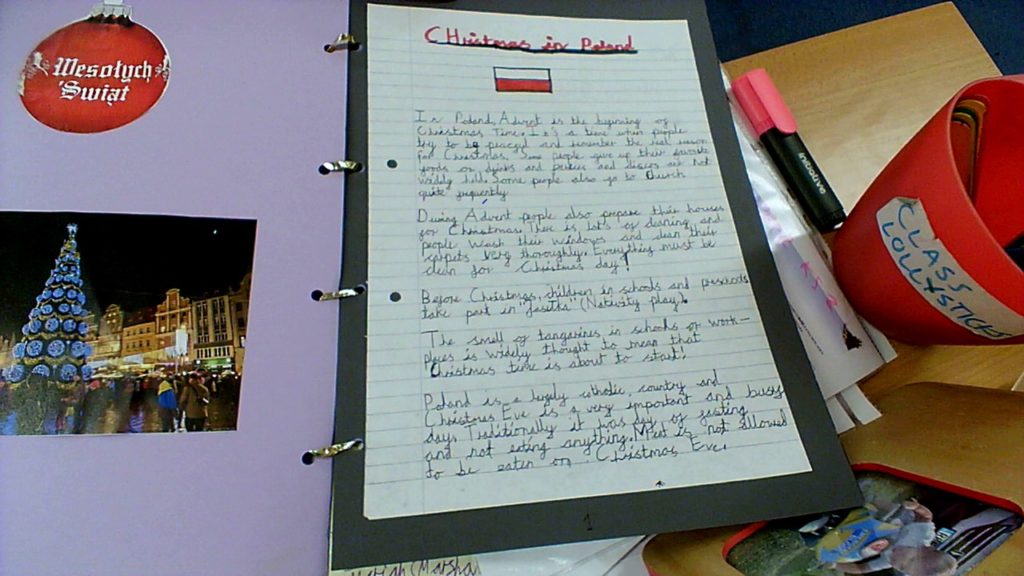 Wesołych
Świąt
CHristmas in Poland
In Poland, Advent is the beginning of
Christmas Time. It's a time when people
try to be peaced and remember the real reason
for Christmas. Some people give up their favorite
foods or drinks and parties and discos are not
widely held. Some people also go to Church
quite frequently
During Advent people also prepare their houses
for Christmas. There is lot's of cleaning and
people wash their windows and clean their
carpets very thoroughly. Everything must be
clean for Christmas day!
Before Christmas, children in schools and preschools
take part in "Jasełka" (Nativity play).
The smell of tangerines in schools or work-
places is widely thought to mean that
Christmas time is about to start!
Poland is a largely catholic country and
Christmas Eve is a very important and busy
day. Traditionally it was day of fasting
and not eating anything. Meat is not allowed
to be eaten on Christmas Eve.
1
initiative
CLASS
LOLLYSTICKS